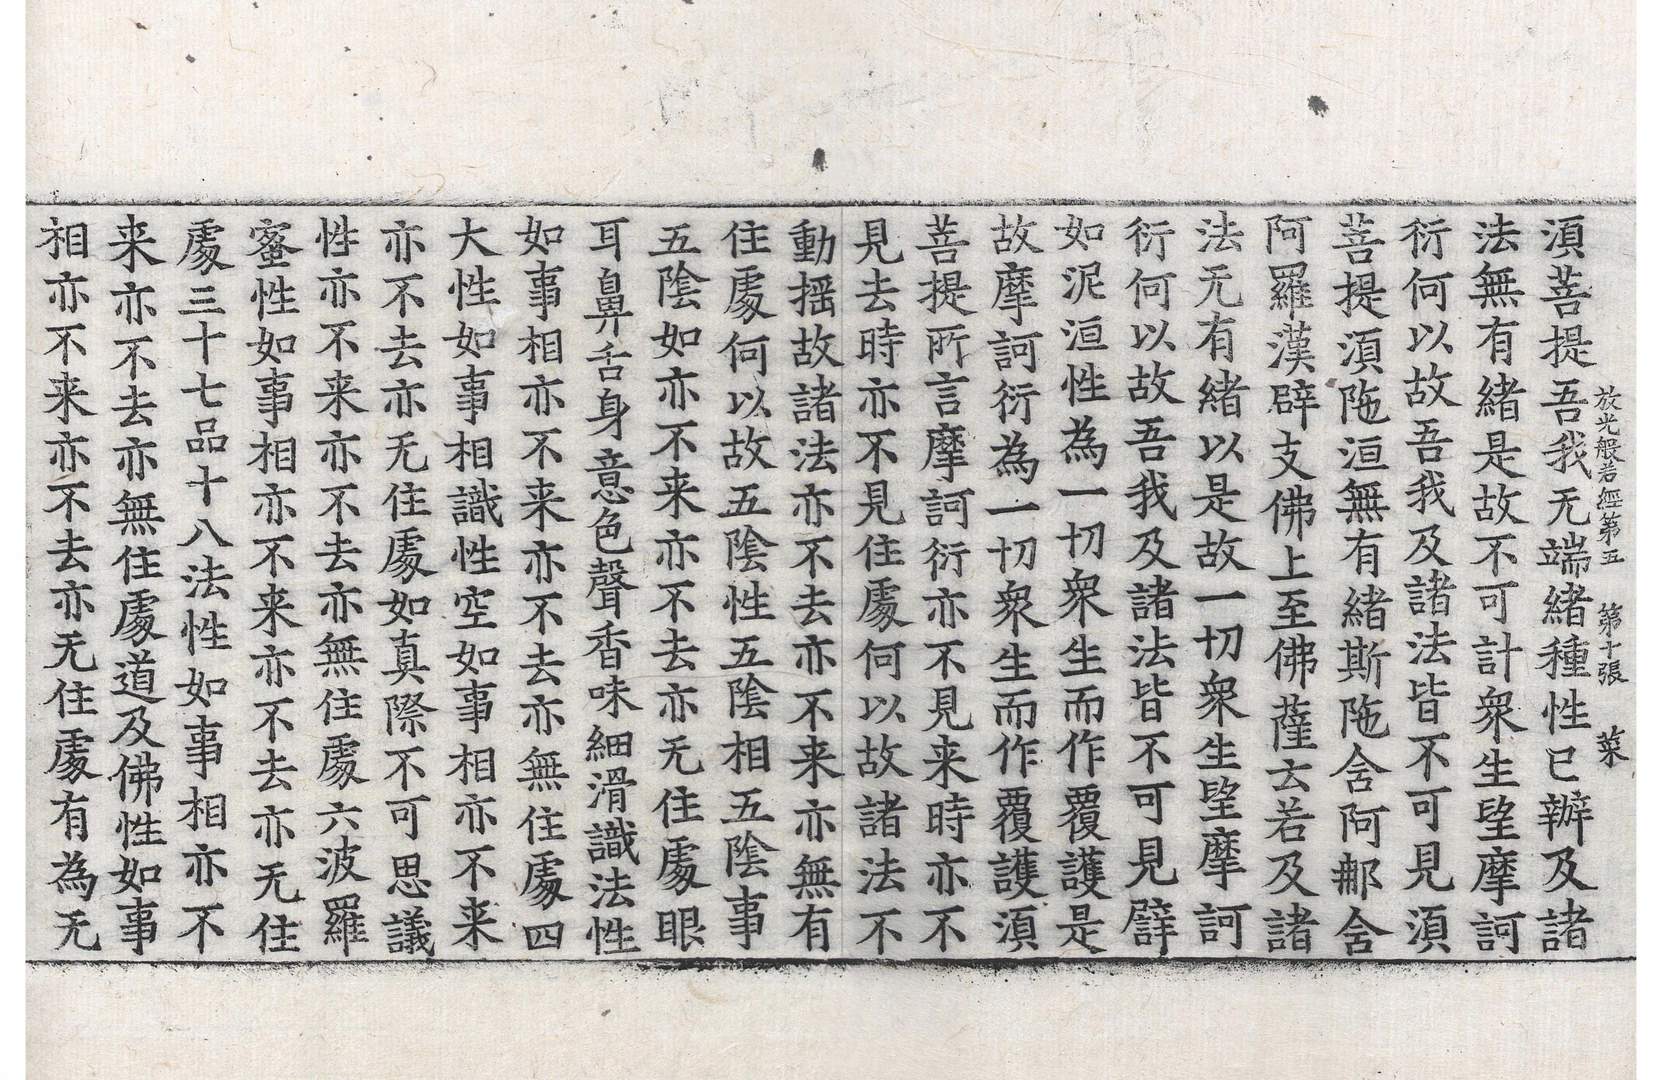 放光般若經第五　第十張　菜
湏菩提吾我无端緒種性已辦及諸
法無有緒是故不可計衆生㘴摩訶
衍何以故吾我及諸法皆不可見湏
菩提湏陁洹無有緒斯陁含阿那含
阿羅漢辟支佛上至佛薩云若及諸
法无有緒以是故一切衆生㘴摩訶
衍何以故吾我及諸法皆不可見譬
如泥洹性為一切衆生而作覆護是
故摩訶衍為一切衆生而作覆護湏
菩提所言摩訶衍亦不見来時亦不
見去時亦不見住處何以故諸法不
動揺故諸法亦不去亦不来亦無有
住處何以故五陰性五陰相五陰事
五陰如亦不来亦不去亦无住處眼
耳鼻舌身意色聲香味細滑識法性
如事相亦不来亦不去亦無住處四
大性如事相識性空如事相亦不来
亦不去亦无住處如真際不可思議
性亦不来亦不去亦無住處六波羅
蜜性如事相亦不来亦不去亦无住
處三十七品十八法性如事相亦不
来亦不去亦無住處道及佛性如事
相亦不来亦不去亦无住處有為无